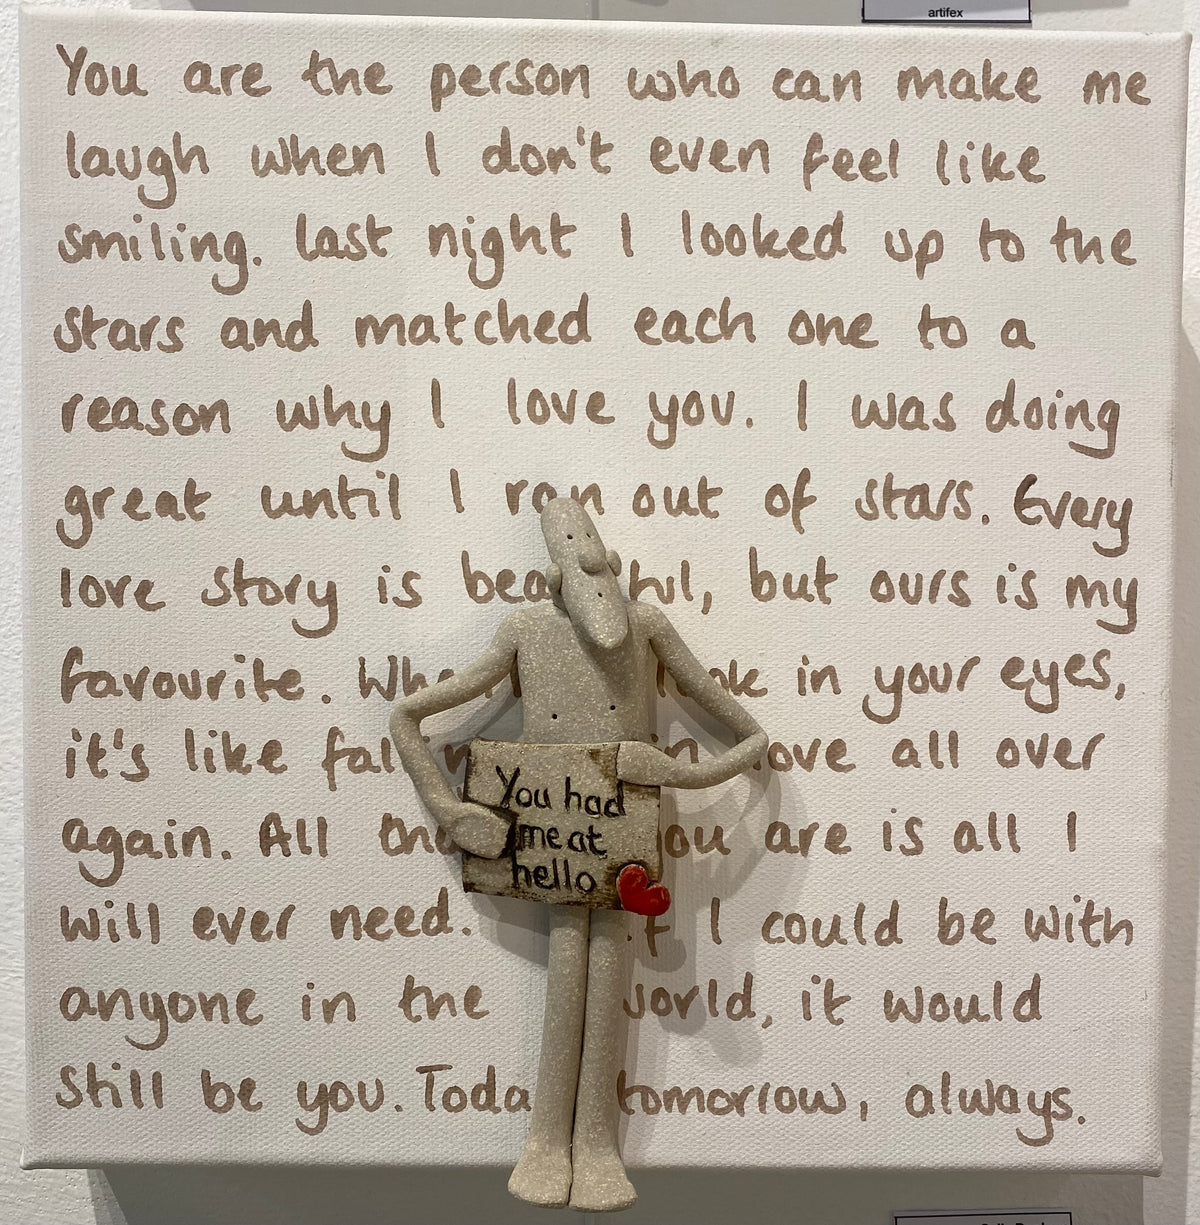 artifex
You are the person who can make me
laugh when I don't even feel like
smiling. Last night I looked up to the
stars and matched each one to a
reason why I love you. I was doing
great until I ran out of stars. Every
love story is beautiful, but ours is my
favourite. When look in your eyes,
it's like falling in love all over
again. All you are is all I
will ever need. If I could be with
anyone in the world, it would
still be you. Today tomorrow, always.
You had
me at
hello